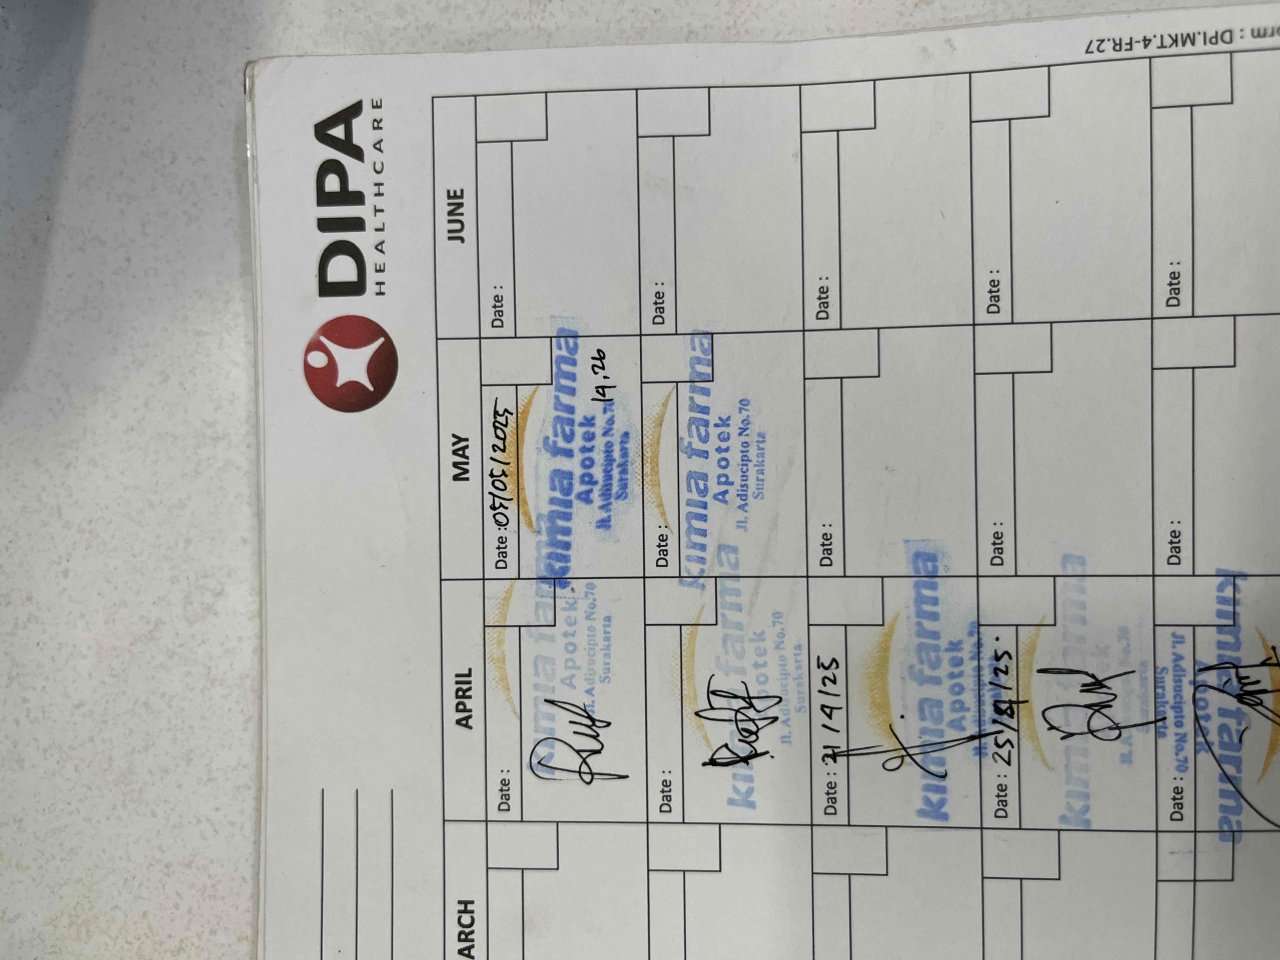 DIPA
HEALTHCARE
orm : DPI.MKT.4-FR.27
ARCH
APRIL
MAY
JUNE
Date :
Date : 05/05/2025
Date :
kimia farma
Apotek
Jl. Adisucipto No.70
Surakarta
kimia farma
Apotek
Jl. Adisucipto No.70
Surakarta
14.26
Date :
Date :
Date :
kimia farma
Apotek
Jl. Adisucipto No.70
Surakarta
kimia farma
Apotek
Jl. Adisucipto No.70
Surakarta
Date : 21/4/25
Date :
Date :
kimia farma
Apotek
Date : 25/4/25.
Date :
Date :
kimia farma
Date :
Date :
Date :
Jl. Adisucipto No.70
Surakarta
Apotek
kimia farma